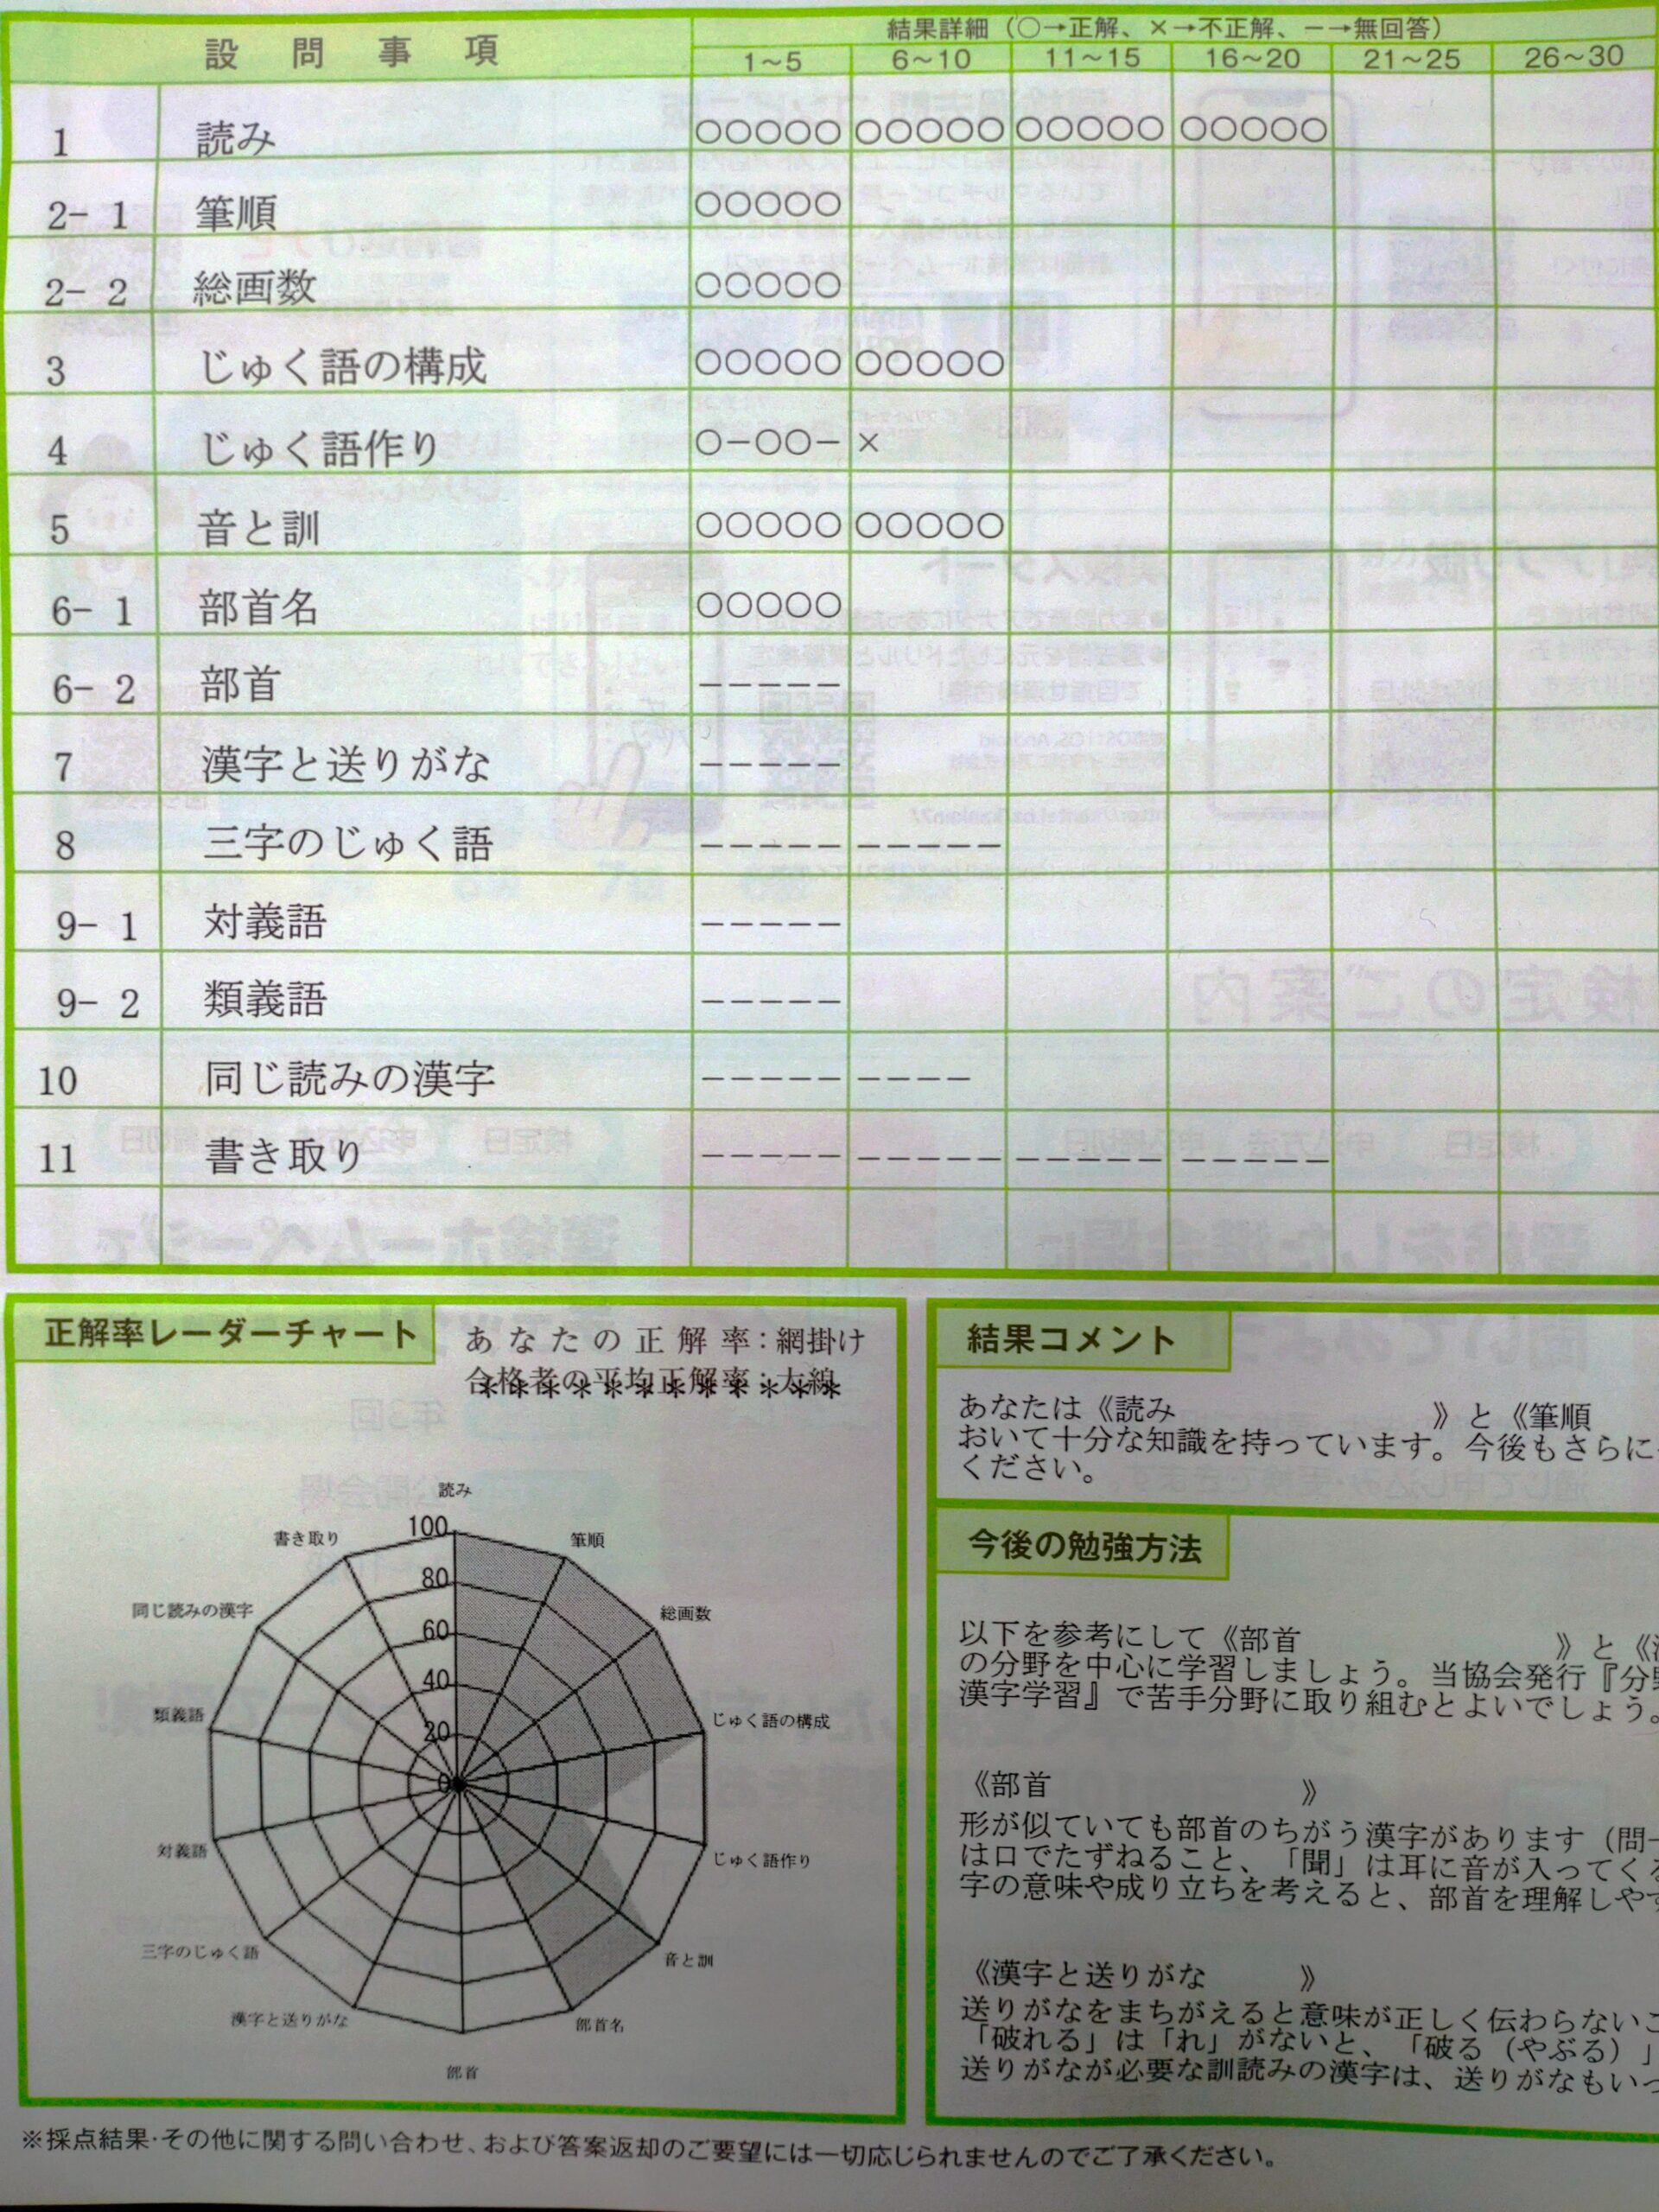 設問事項
結果詳細（○→正解、×→不正解、－→無回答）
1～5 6～10 11～15 16～20 21～25 26～30
1 読み ○○○○○ ○○○○○ ○○○○○ ○○○○○
2- 1 筆順 ○○○○○
2- 2 総画数 ○○○○○
3 じゅく語の構成 ○○○○○ ○○○○○
4 じゅく語作り ○－○○－ ×
5 音と訓 ○○○○○ ○○○○○
6- 1 部首名 ○○○○○
6- 2 部首 －－－－－
7 漢字と送りがな －－－－－
8 三字のじゅく語 －－－－－ －－－－－
9- 1 対義語 －－－－－
9- 2 類義語 －－－－－
10 同じ読みの漢字 －－－－－ －－－－
11 書き取り －－－－－ －－－－－ －－－－－ －－－－－
正解率レーダーチャート
あなたの正解率：網掛け
合格者の平均正解率：太線
＊＊＊＊＊＊＊＊＊＊＊＊
読み
筆順
総画数
じゅく語の構成
じゅく語作り
音と訓
部首名
部首
漢字と送りがな
三字のじゅく語
対義語
類義語
同じ読みの漢字
書き取り
100
80
60
40
20
0
結果コメント
あなたは《読み 》と《筆順
おいて十分な知識を持っています。今後もさらに
ください。
今後の勉強方法
以下を参考にして《部首 》と《
の分野を中心に学習しましょう。当協会発行『分
漢字学習』で苦手分野に取り組むとよいでしょう。
《部首 》
形が似ていても部首のちがう漢字があります（問
は口でたずねること、「聞」は耳に音が入ってくる
字の意味や成り立ちを考えると、部首を理解しやす
《漢字と送りがな 》
送りがなをまちがえると意味が正しく伝わらないこ
「破れる」は「れ」がないと、「破る（やぶる）」
送りがなが必要な訓読みの漢字は、送りがなもいっ
※採点結果・その他に関する問い合わせ、および答案返却のご要望には一切応じられませんのでご了承ください。